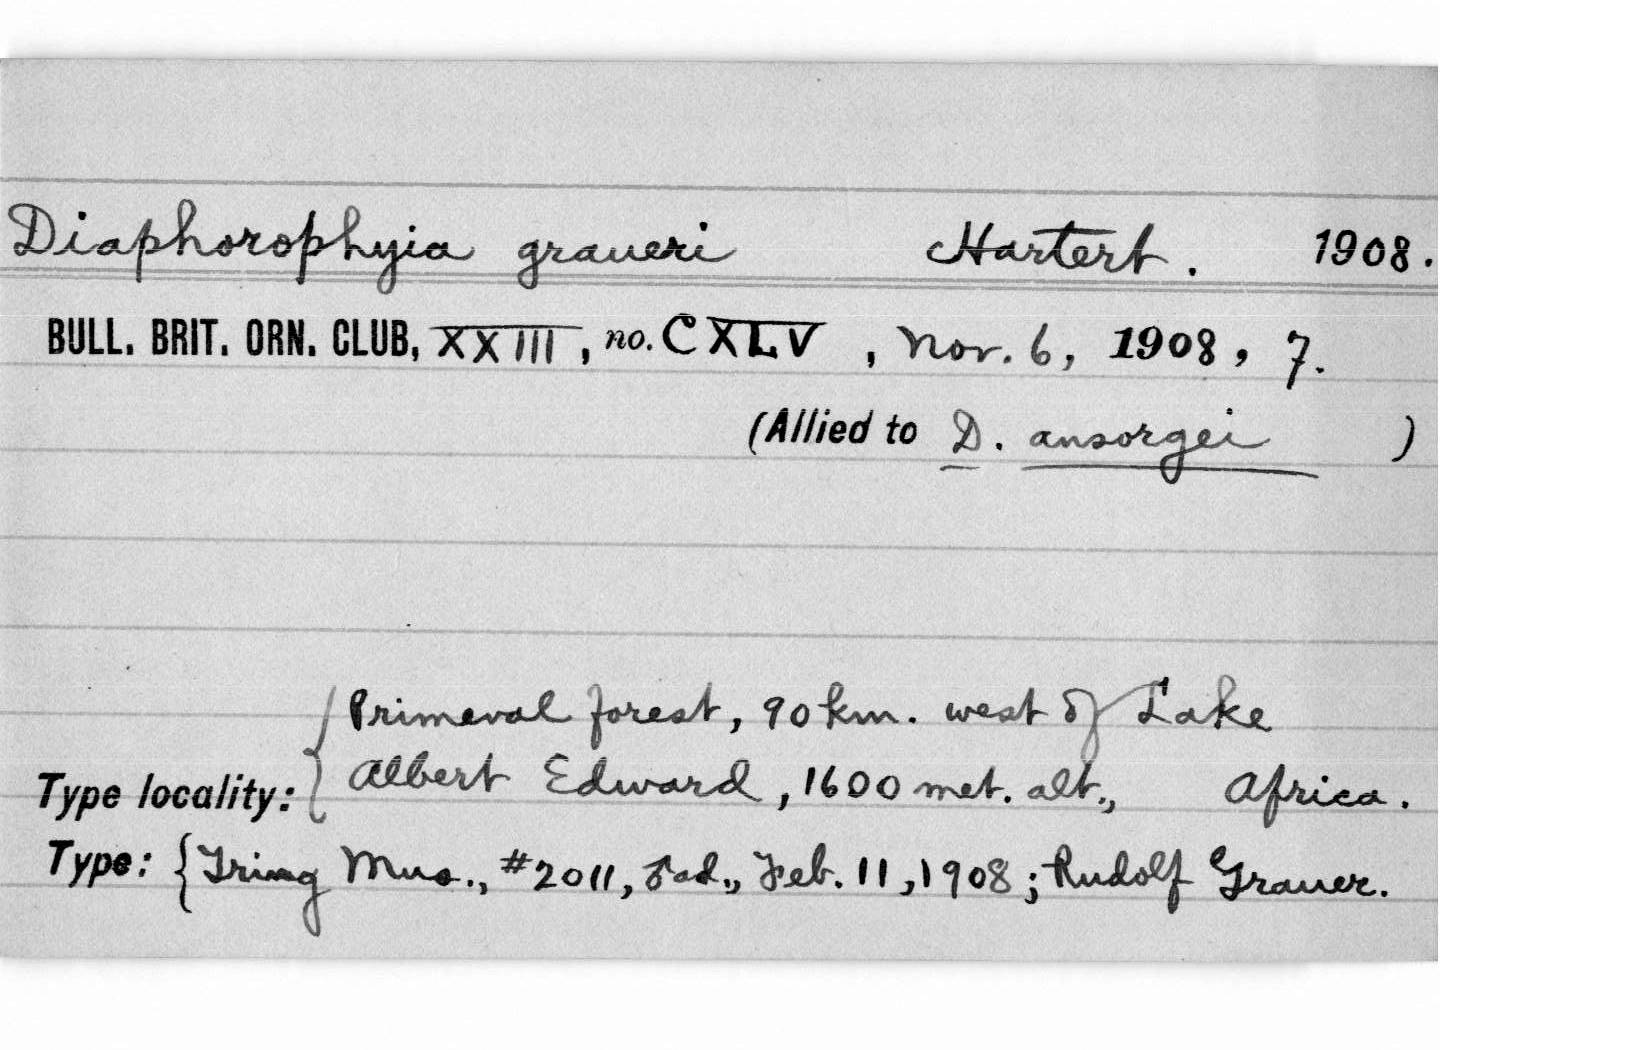 Diaphorophyia graueri Hartert. 1908.
BULL. BRIT. ORN. CLUB, XXIII, no. CXLV, Nov. 6, 1908, 7.
(Allied to D. ansorgei )
Primeval forest, 90 km. west of Lake
Type locality: { Albert Edward, 1600 met. alt., Africa.
Type: { Tring Mus., #2011, ♂ ad., Feb. 11, 1908; Rudolf Grauer.